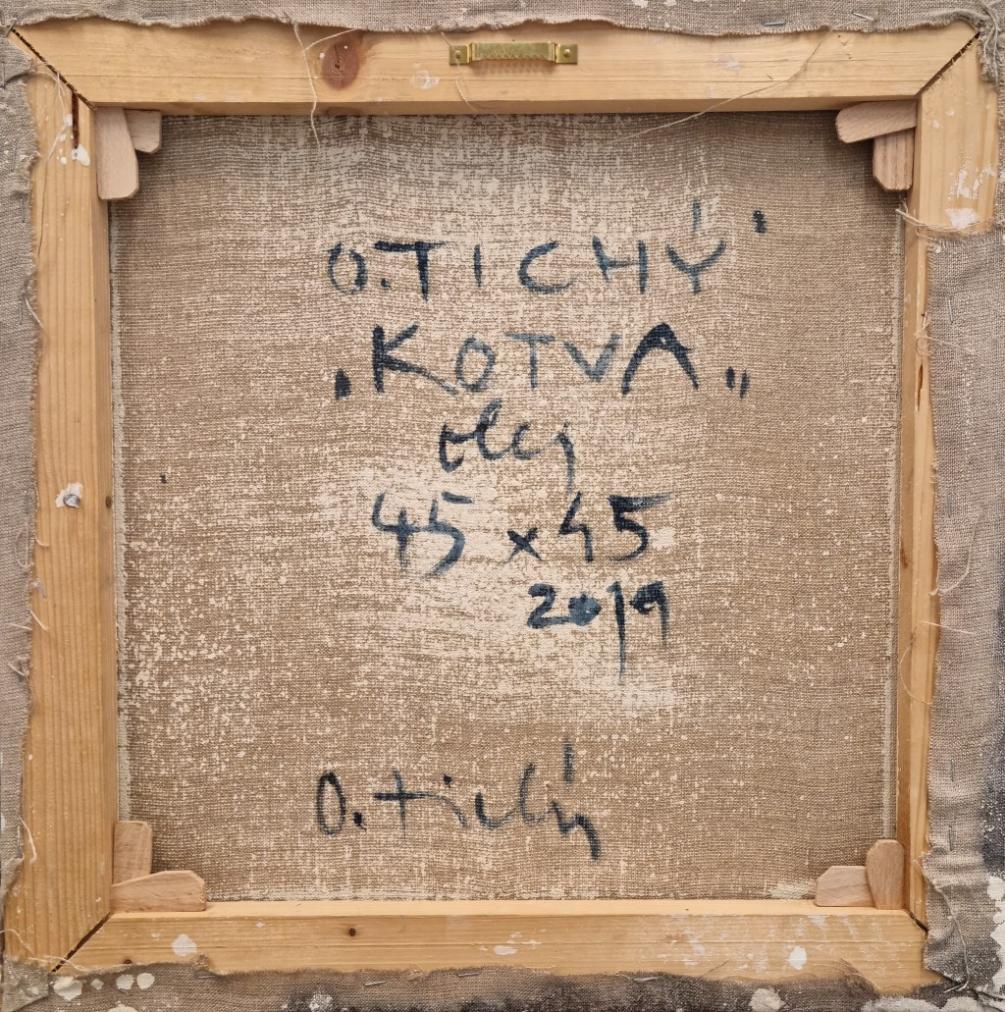 O. TICHÝ
„KOTVA"
olej
45 x 45
2019
O. tichý